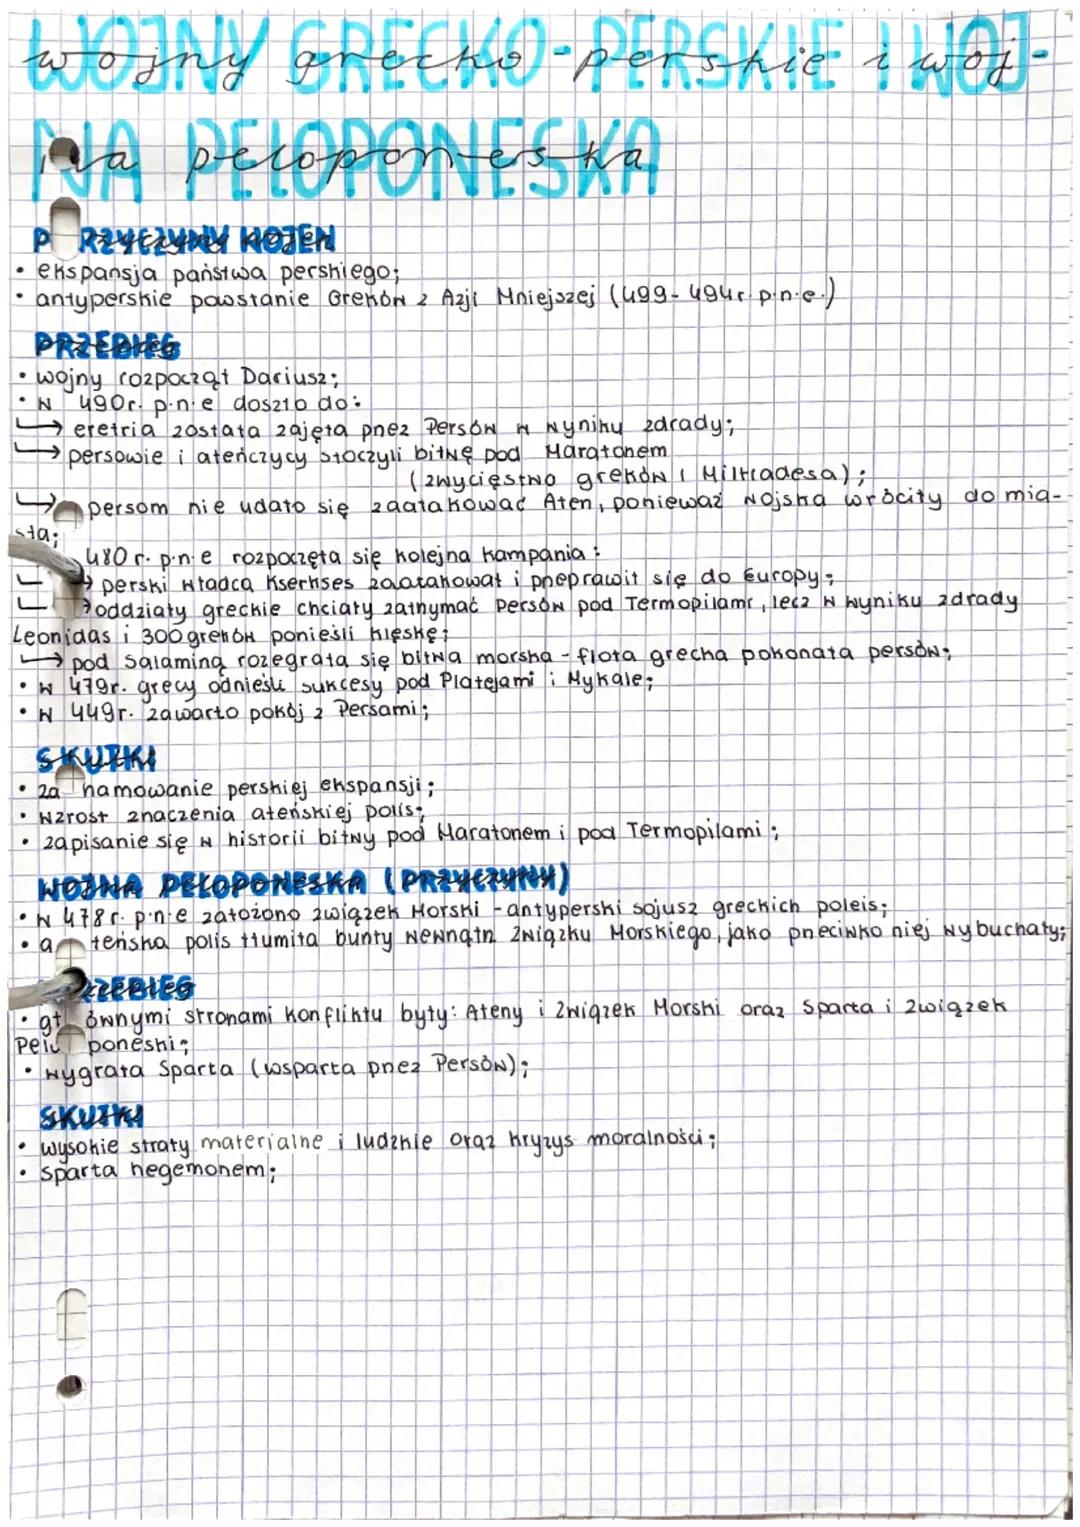 WOJNY GRECKO-PERSKIE I WOJ-
NA PELOPONESKA
PRZYCZYNY WOJEN
• ekspansja państwa perskiego;
• antyperskie powstanie Greków z Azji Mniejszej (499-494r. p.n.e.)
PRZEBIEG
• wojny rozpoczął Dariusz;
• w 490r. p.n.e doszło do:
↳ eretria została zajęta przez Persów w wyniku zdrady;
↳ persowie i ateńczycy stoczyli bitwę pod Maratonem
(zwycięstwo greków i Miltiadesa);
↳ persom nie udało się zaatakować Aten, ponieważ wojska wróciły do mia-
sta;
480 r. p.n.e rozpoczęła się kolejna kampania:
↳ perski władca Kserkses zaatakował i przeprawił się do Europy;
↳ oddziały greckie chciały zatrzymać Persów pod Termopilami, lecz w wyniku zdrady
Leonidas i 300 greków ponieśli klęskę;
↳ pod Salaminą rozegrała się bitwa morska - flota grecka pokonała persów;
• w 479r. grecy odnieśli sukcesy pod Platejami i Mykale;
• w 449r. zawarto pokój z Persami;
SKUTKI
• zahamowanie perskiej ekspansji;
• wzrost znaczenia ateńskiej polis;
• zapisanie się w historii bitwy pod Maratonem i pod Termopilami;
WOJNA PELOPONESKA (PRZYCZYNY)
• w 478r. p.n.e założono związek Morski - antyperski sojusz greckich poleis;
• ateńska polis tłumiła bunty wewnątrz Związku Morskiego, jako przeciwko niej wybuchały;
PRZEBIEG
• głównymi stronami konfliktu były: Ateny i Związek Morski oraz Sparta i Związek
Peloponeski;
• wygrała Sparta (wsparta przez Persów);
SKUTKI
• wysokie straty materialne i ludzkie oraz kryzys moralności;
• Sparta hegemonem;